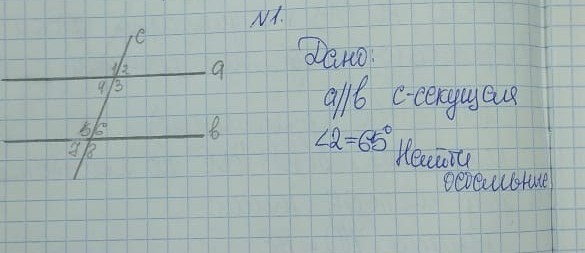 N1.
c
1 2
a
4 3
5 6
b
7 8
Дано:
a//b c-секущая
<2=65°
Найти
остальные